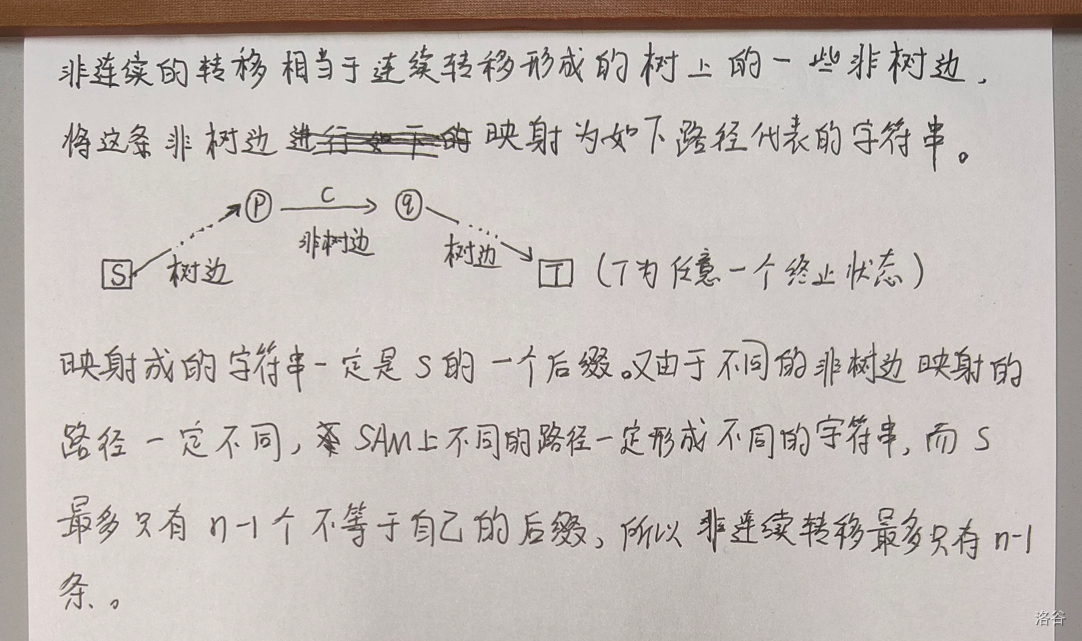 非连续的转移相当于连续转移形成的树上的一些非树边，
将这条非树边进行如下的映射为如下路径代表的字符串。
S 树边 p c 非树边 q 树边 T （T为任意一个终止状态）
映射成的字符串一定是S的一个后缀。又由于不同的非树边映射的
路径一定不同，SAM上不同的路径一定形成不同的字符串，而S
最多只有n-1个不等于自己的后缀，所以非连续转移最多只有n-1
条。
洛谷